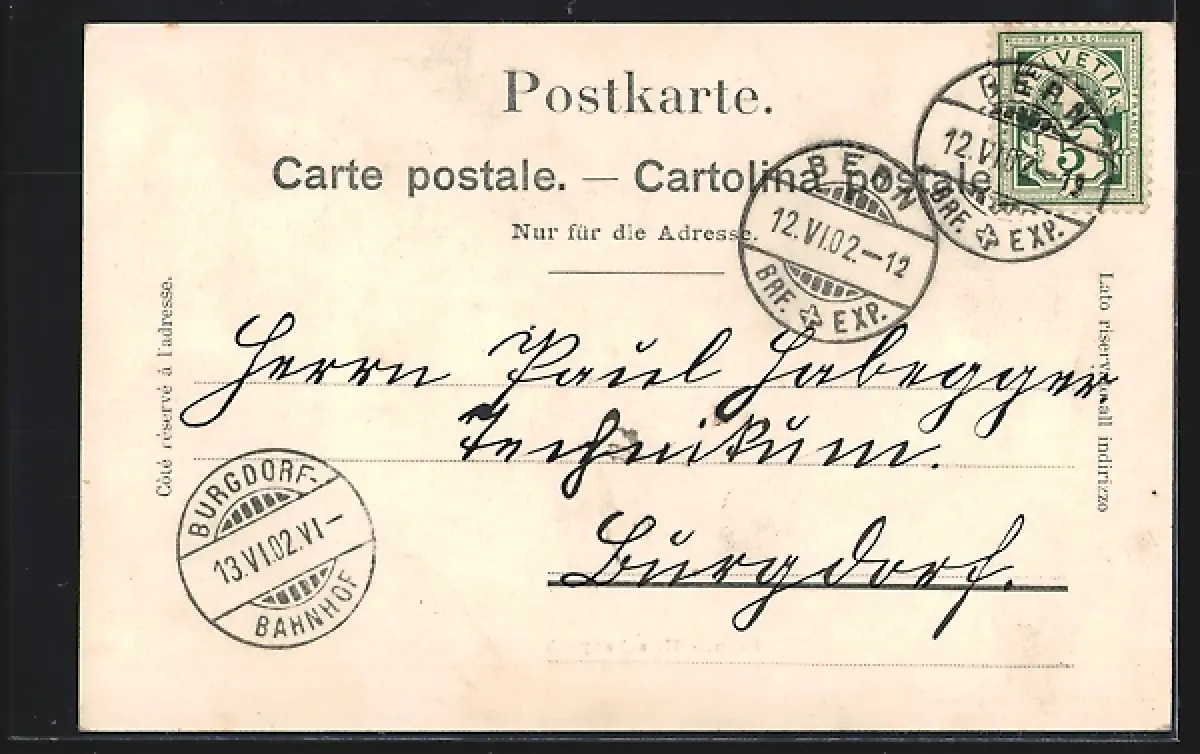 Postkarte.
Carte postale. — Cartolina postale
Nur für die Adresse.
FRANCO
HELVETIA
FRANCO
5
BERN
12.VI.02.–12
BRF. EXP.
BERN
12.VI.02. 12
BRF. EXP.
Côté réservé à l'adresse.
Lato riservato all indirizzo
Herrn Paul Habegger
Technikum.
Burgdorf.
BURGDORF-
13.VI.02.VI–
BAHNHOF